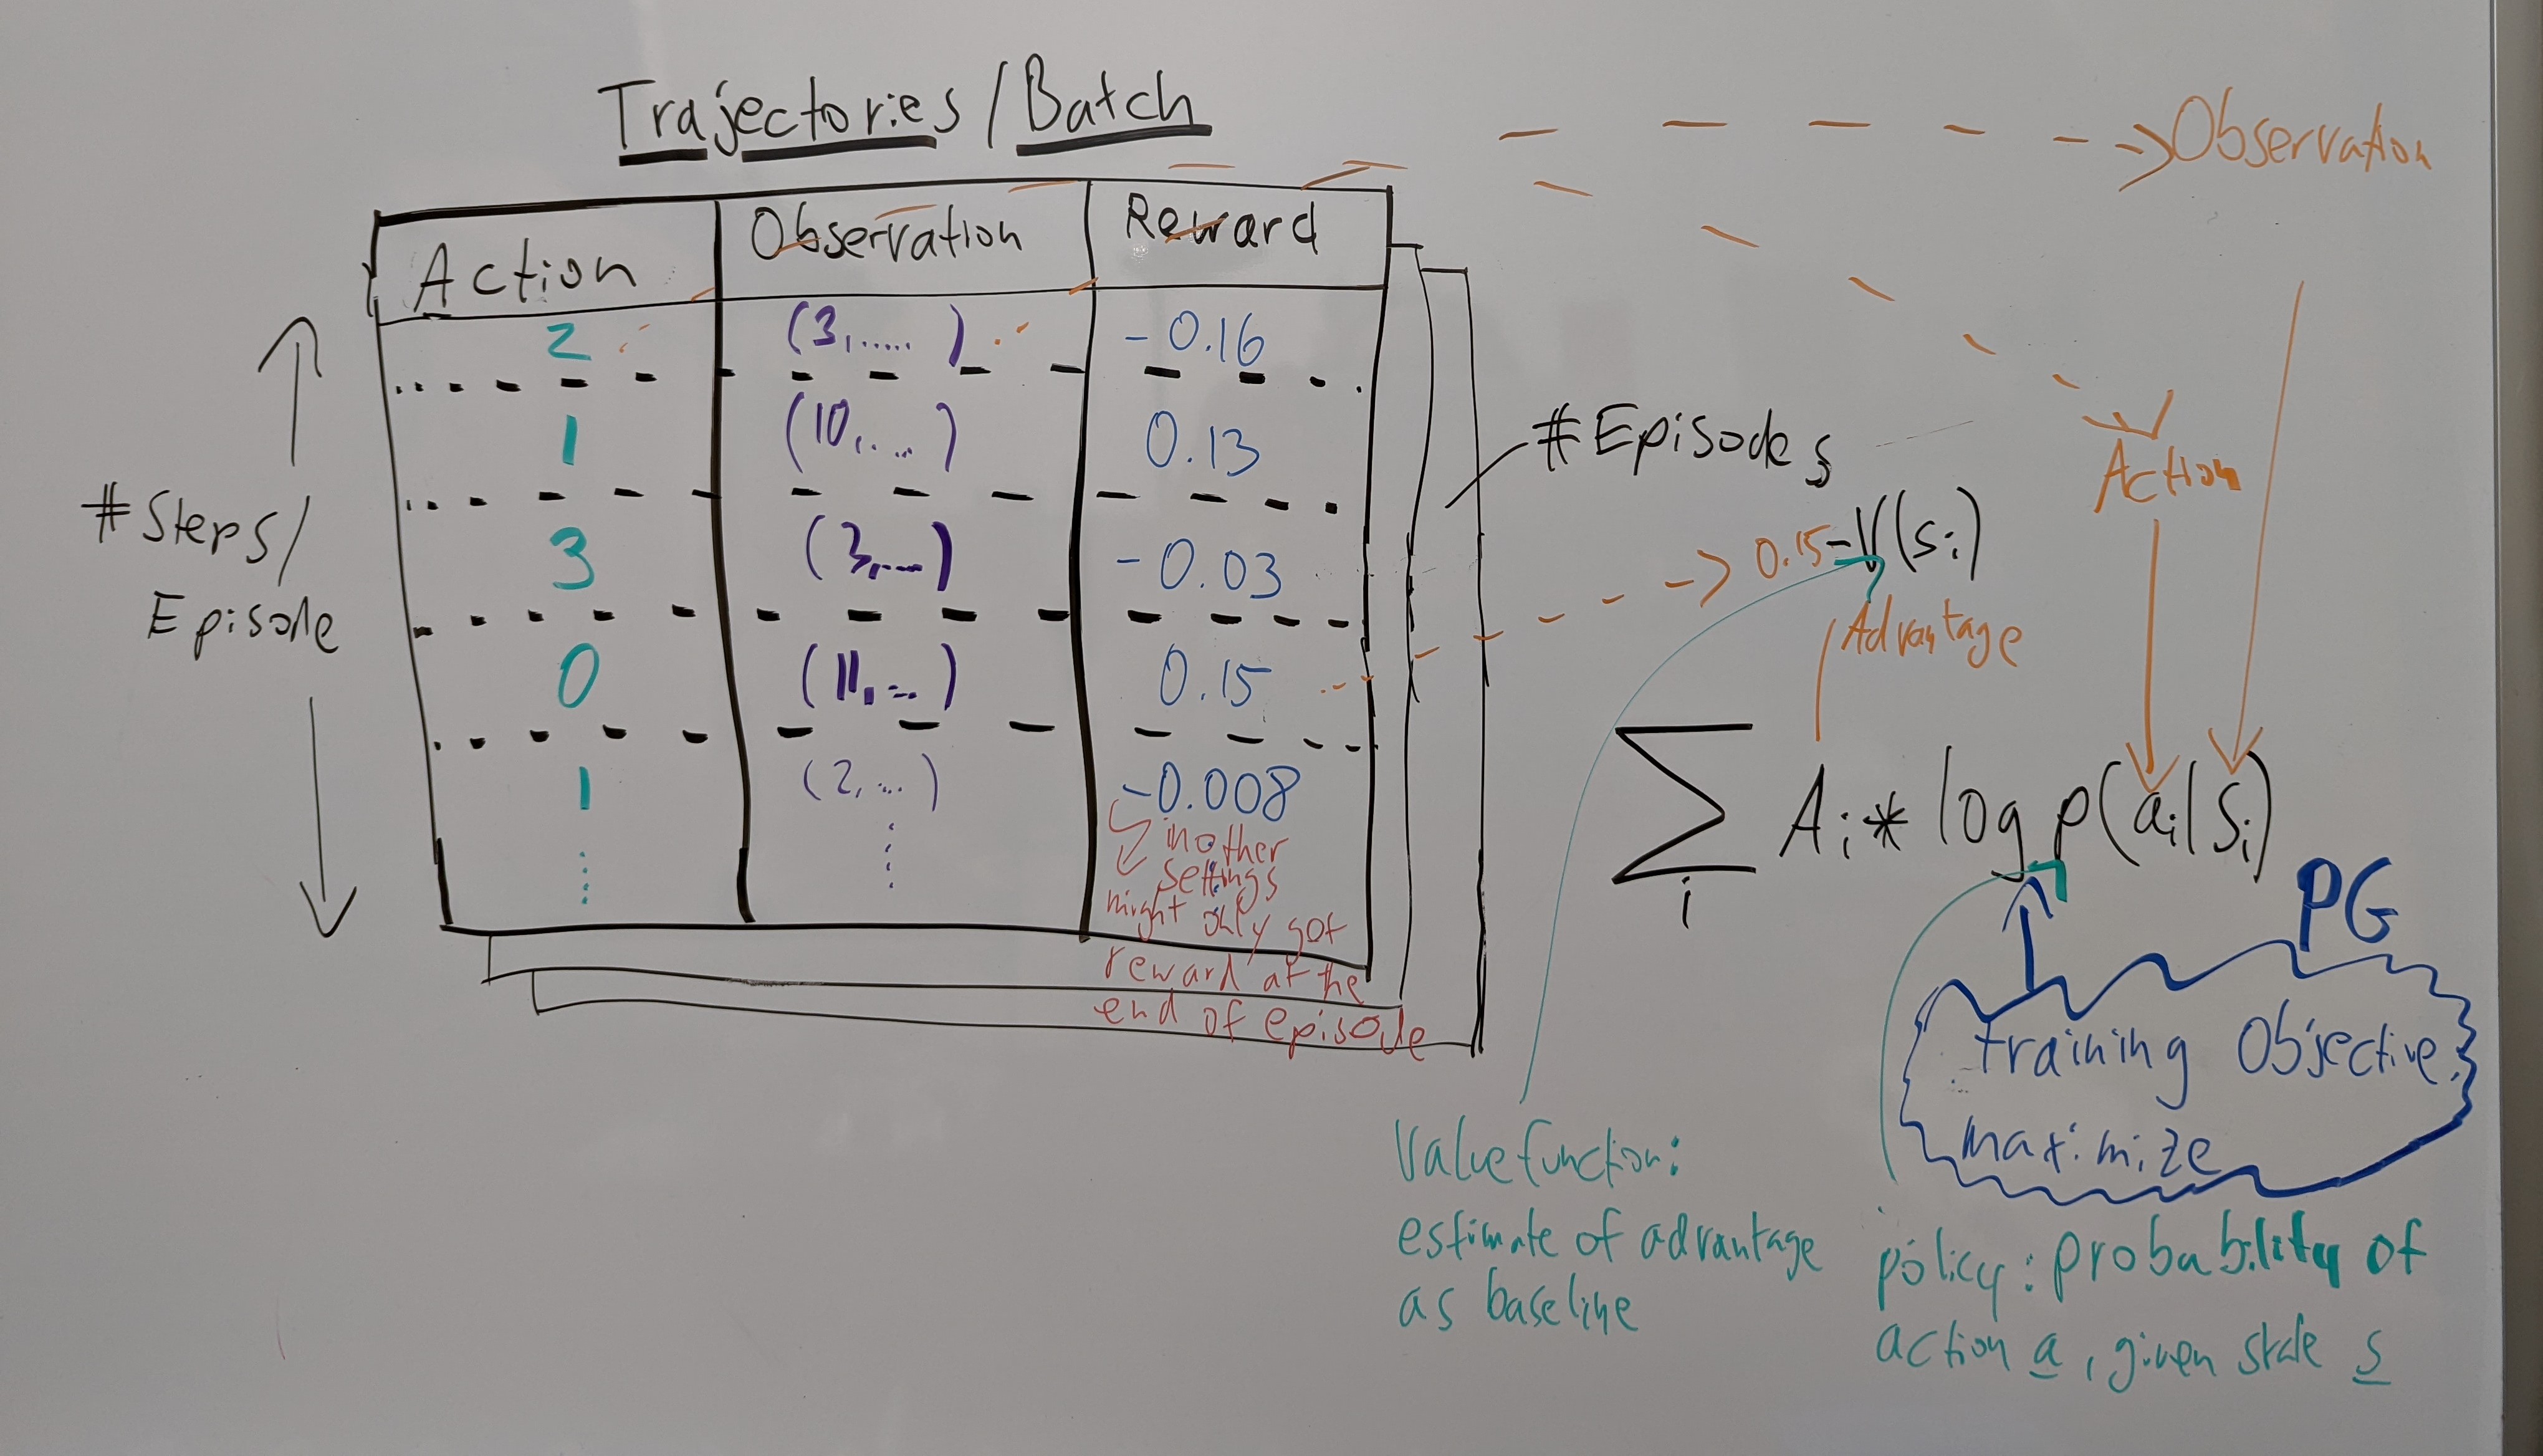 Trajectories/Batch
Observation
Action
Observation
Reward
2
(3,.....)
-0.16
1
(10,....)
0.13
3
(3,...)
-0.03
0
(11,...)
0.15
1
(2,...)
-0.008
in other
settings
might only got
reward at the
end of episode
#Steps/
Episode
#Episodes
Action
0.15-V(si)
Advantage
∑ Ai * log p(ai|si)
i
PG
training Objective:
maximize
Value function:
estimate of advantage
as baseline
policy: probability of
action a, given state s